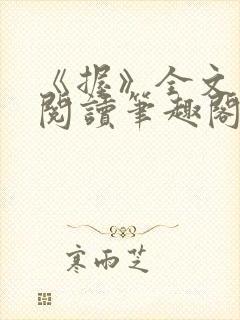 《握》全文
閱讀筆趣閣
寒雨芝